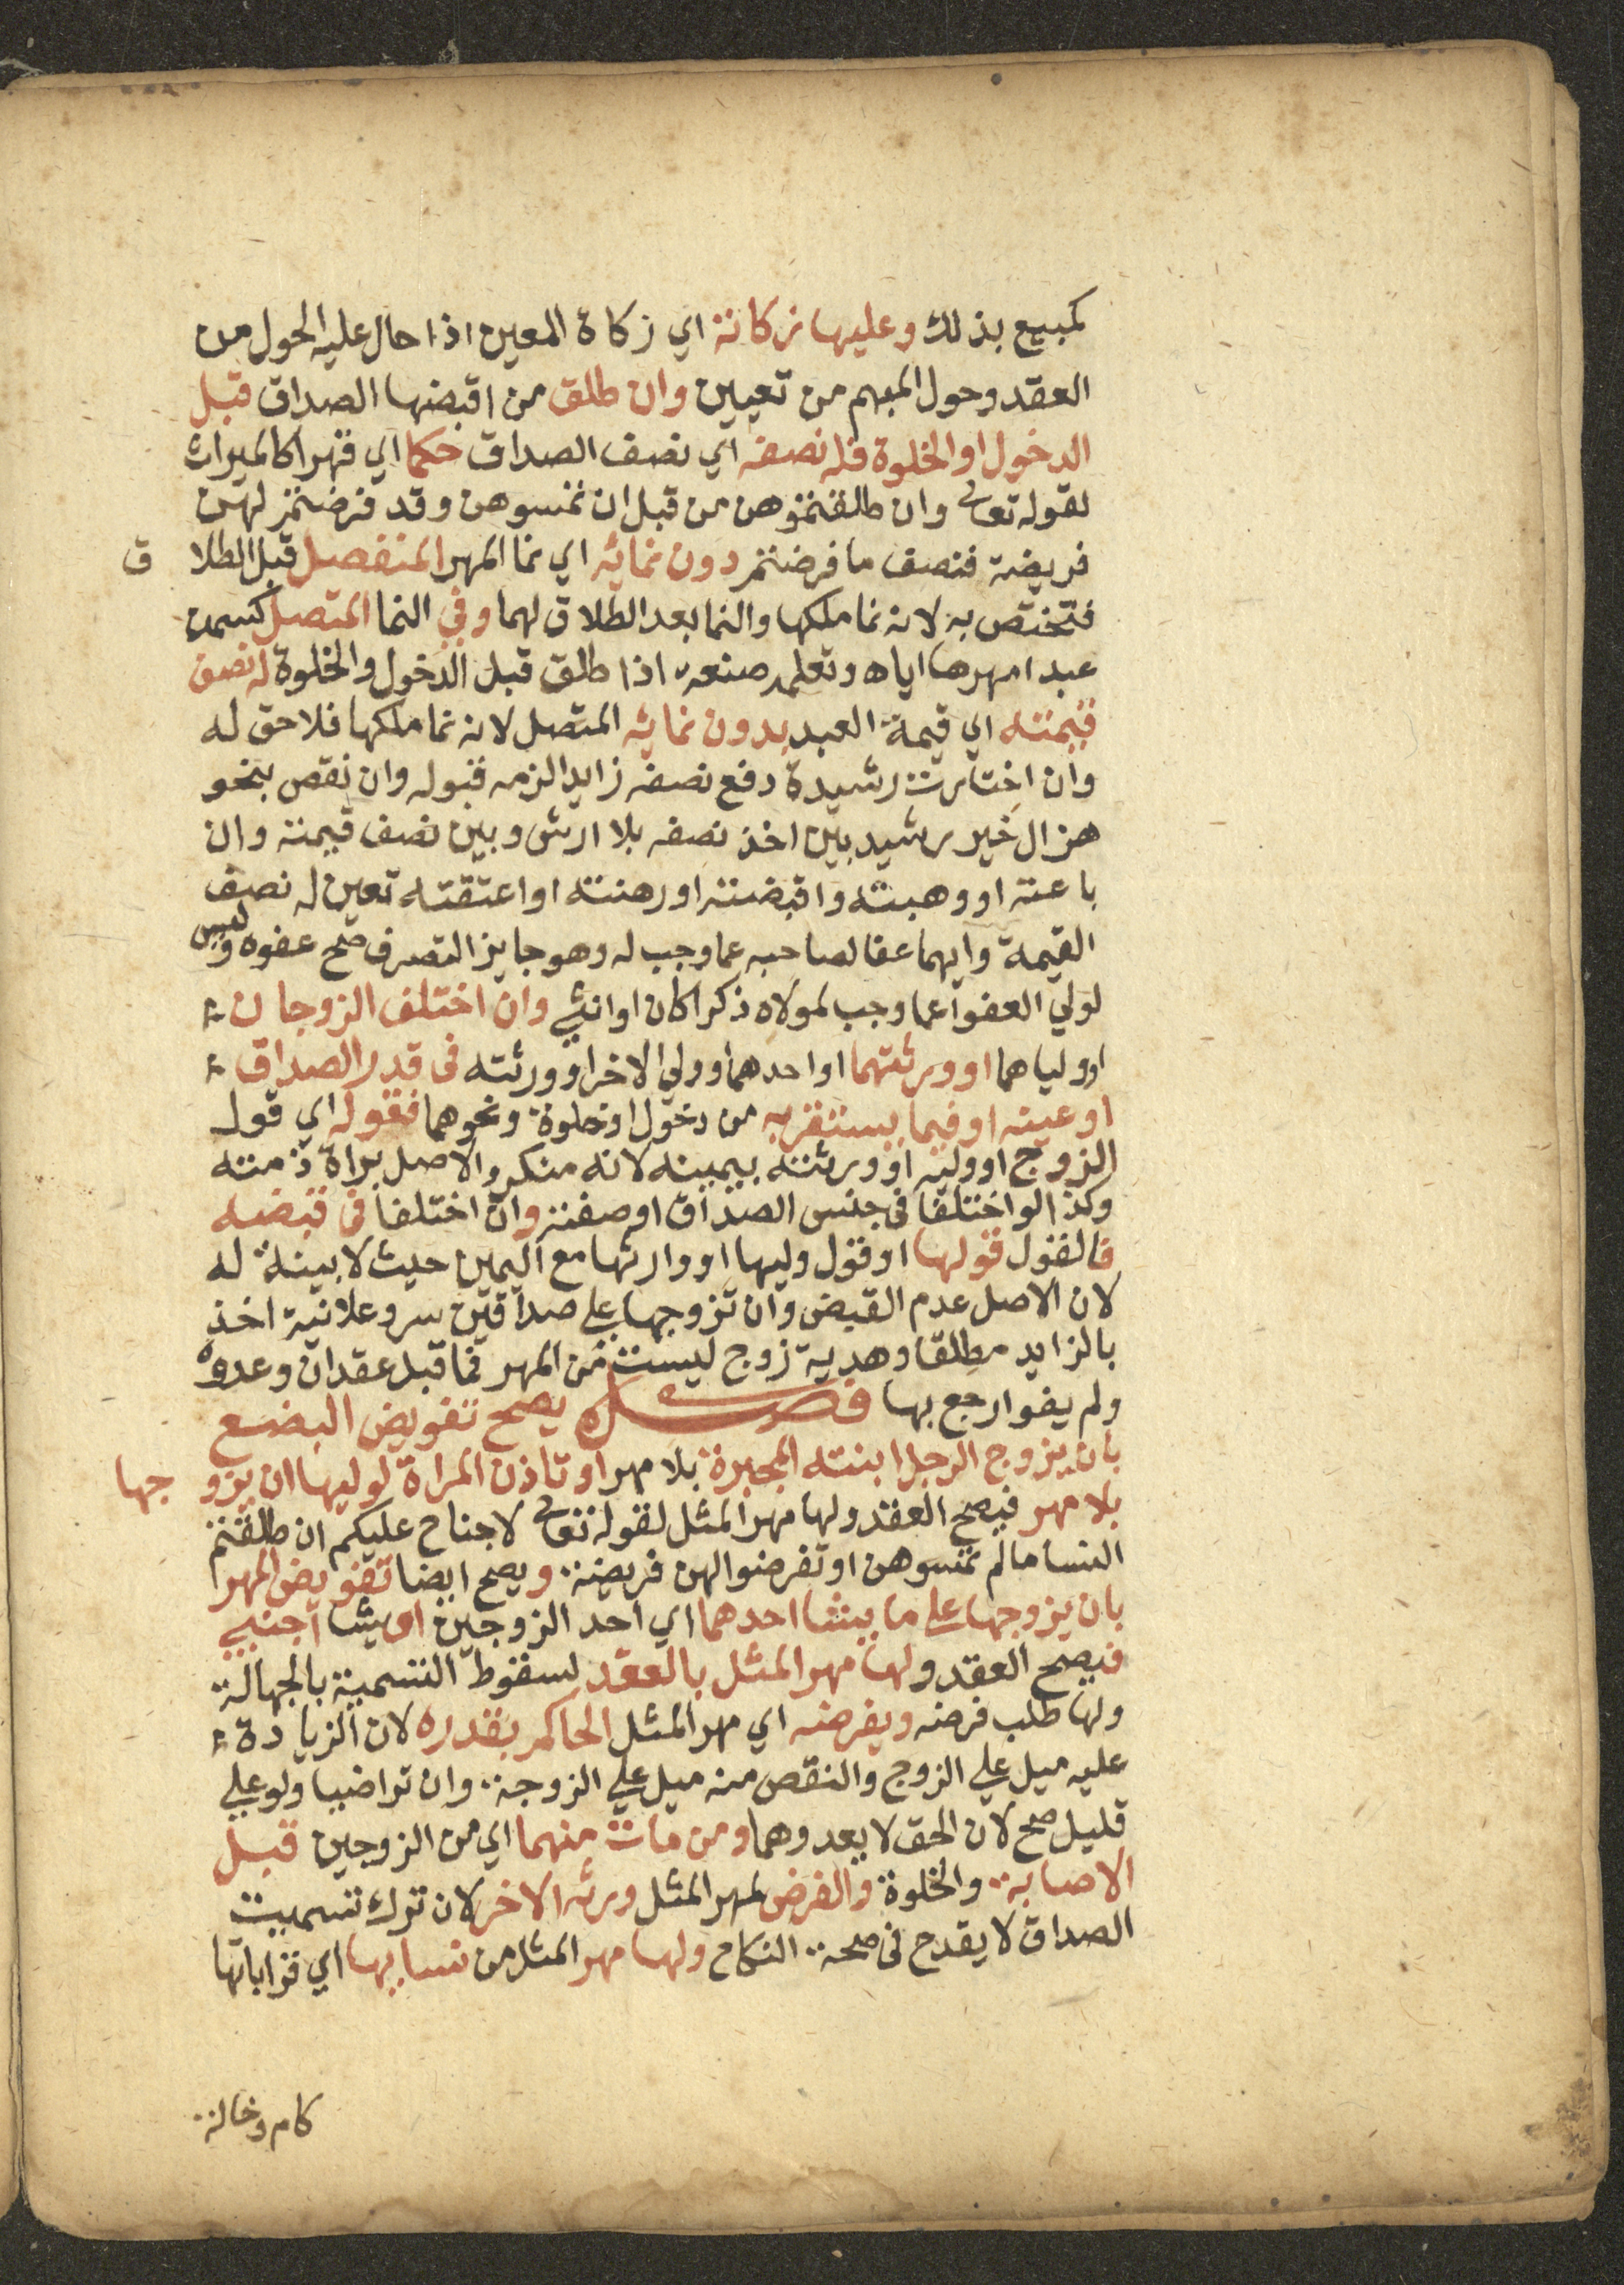 كمبيع بذلك وعليها زكاته اي زكاة المعين اذا حال عليه الحول من
العقد وحول المبهم من تعيين وان طلق من اقبضها الصداق قبل
الدخول او الخلوة فله نصفه اي نصف الصداق حكما اي قهرا كالميراث
لقوله تعالى وان طلقتموهن من قبل ان تمسوهن وقد فرضتم لهن
فريضة فنصف ما فرضتم دون نمائه اي نما المهر المنفصل قبل الطلاق
فتختص به لانه نما ملكها والنما بعد الطلاق لهما وفي النما المتصل كسمن
عبد امهرها اياه وتعلمه صنعة اذا طلق قبل الدخول والخلوة له نصف
قيمته اي قيمة العبد بدون نمائه المتصل لانه نما ملكها فلا حق له
وان اختارت رشيدة دفع نصفه زايدا لزمه قبوله وان نقص بنحو
هزال خير رشيد بين اخذ نصفه بلا ارش وبين نصف قيمته وان
باعته او وهبته واقبضته او رهنته او اعتقته تعين له نصف
القيمة وايهما عفا لصاحبه عما وجب له وهو جايز التصرف صح عفوه وليس
لولي العفو عما وجب لمولاه ذكرا كان او انثي وان اختلف الزوجان
او ولياهما او ورثتهما او احدهما وولي الاخر او ورثته في قدر الصداق
او عينه او فيما يستقر به من دخول او خلوة ونحوهما فقوله اي قول
الزوج او وليه او ورثته بيمينه لانه منكر والاصل براة ذمته
وكذا لو اختلفا في جنس الصداق او صفته وان اختلفا في قبضه
فالقول قولها او قول وليها او وارثها مع اليمين حيث لا بينة له
لان الاصل عدم القبض وان تزوجها علي صداقين سر وعلانية اخذ
بالزايد مطلقا وهدية زوج ليست من المهر فما قبل عقد ان وعدوه
ولم يفوا رجع بها فصل يصح تفويض البضع
بان يزوج الرجل ابنته المجبرة بلا مهر او تاذن المراة لوليها ان يزوجها
بلا مهر فيصح العقد ولها مهر المثل لقوله تعالى لا جناح عليكم ان طلقتم
النسا مالم تمسوهن او تفرضوا لهن فريضة ويصح ايضا تفويض المهر
بان يزوجها علي ما يشا احدهما اي احد الزوجين او يشا اجنبي
فيصح العقد ولها مهر المثل بالعقد لسقوط التسمية بالجهالة
ولها طلب فرضه ويفرضه اي مهر المثل الحاكم بقدره لان الزيادة
عليه ميل علي الزوج والنقص منه ميل علي الزوجة وان تراضيا ولو علي
قليل صح لان الحق لا يعدوهما ومن مات منهما اي من الزوجين قبل
الاصابة والخلوة والفرض لمهر المثل ورثه الاخر لان ترك تسمية
الصداق لا يقدح في صحة النكاح ولها مهر المثل من نسايها اي قراباتها
كام وخالة